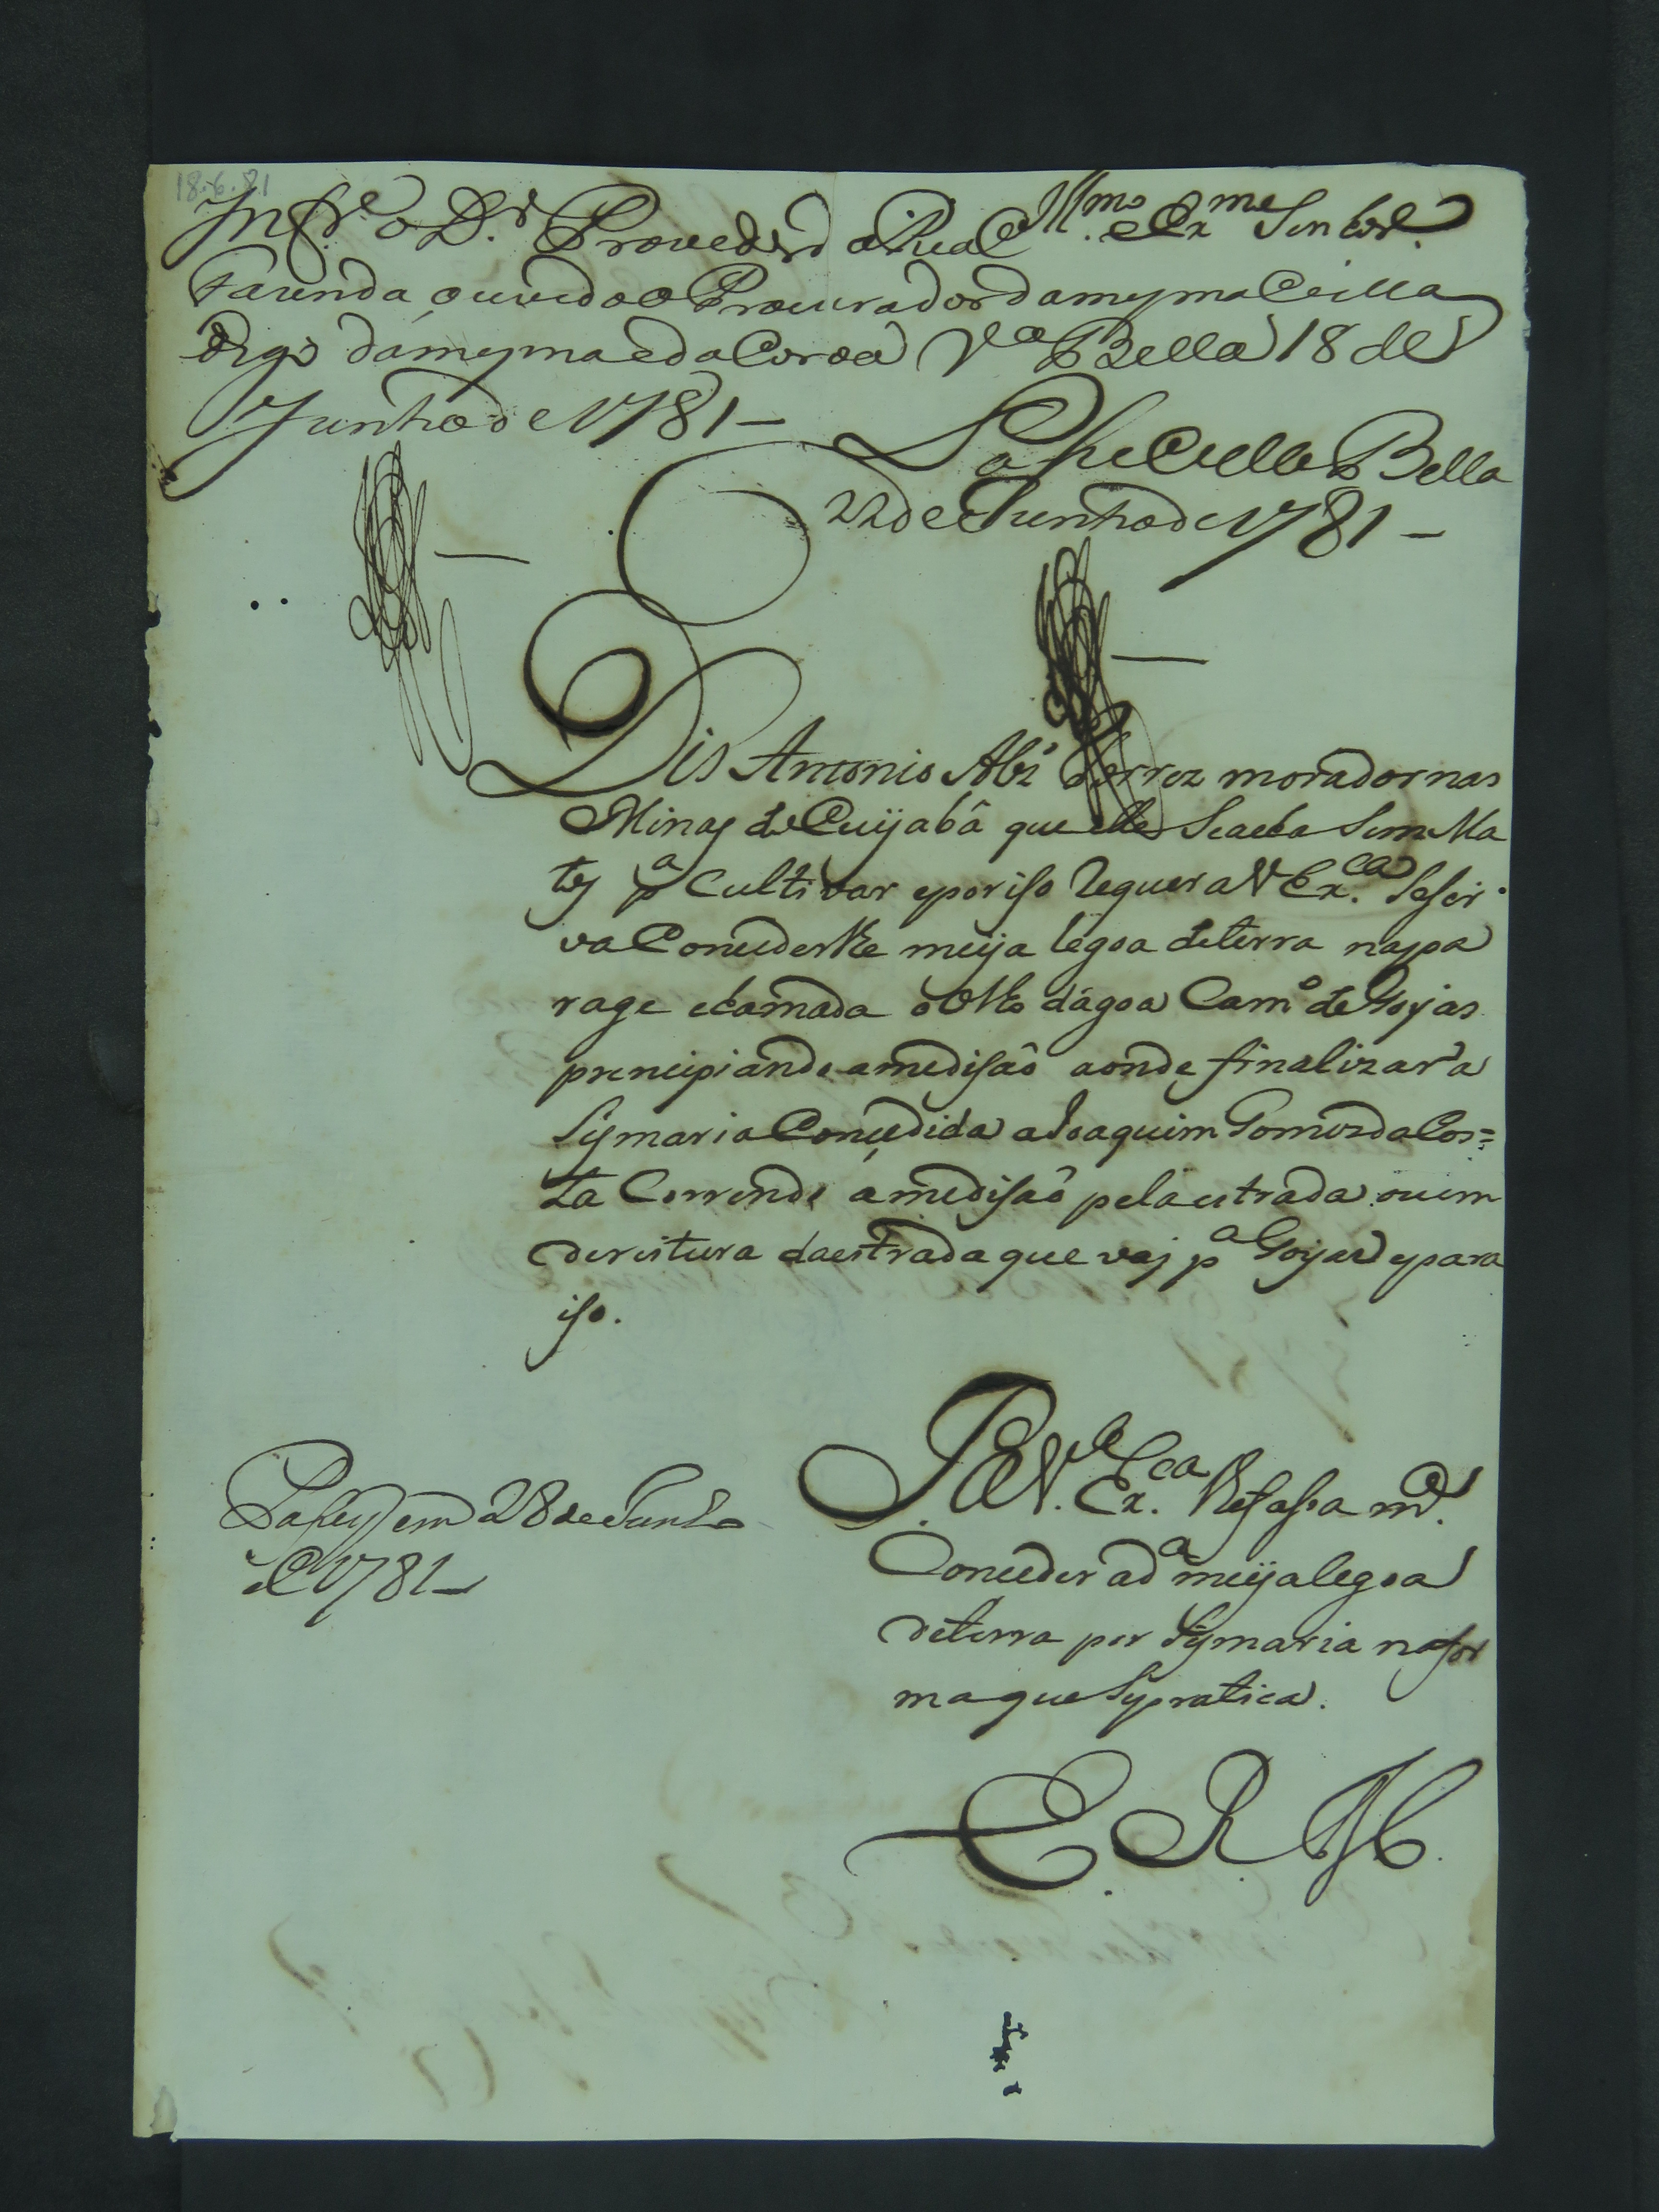 18.6.81
Illmo. e Exme Senhor
Infre. o Dr. Provedor da Real
Fazenda, ouvido o Procurador da mesma e Villa
da mesma e da Coroa Va Bella 18 de
Junho de 1781 -
Passe Villa Bella
22 de Junho de 1781 -
Dis Antonio Abz morador nas
Minas do Cuijabâ que elle Seacha Sem Ma
tos pa Cultivar e por iso Requer a V Exca. Sesir
va Concederlhe meija legoa de terra napa
rage chamada o Olho dágoa Camo de Goyas
prencipiando amedisaõ aonde finalizar a
Sysmaria Concedida a Joaquim Gomes da Cos=
ta Correndo amedisaõ pela estrada ou em
dereitura da estrada que vaj pa Goyas e para
iso.
P. A V. Exca. lhe fasa md.
Conceder a da meija legoa
de terra por Sysmaria na for
ma que Sepratica.
Passey em 28 de Junho
de 1781 -
E. R. M.